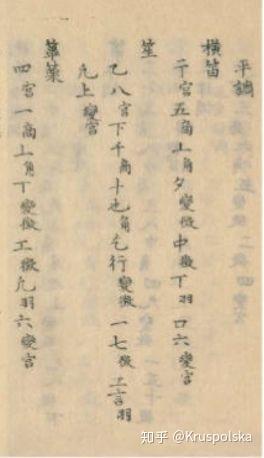 平調
横笛
干宮五商上角夕變徵中徵丅羽口六變宮
笙
乙八宮下千商十也角乞行變徵一七徵言羽
九上變宮
篳篥
四宮一商上角丅變徵工徵九羽六變宮
知乎 @Kruspolska